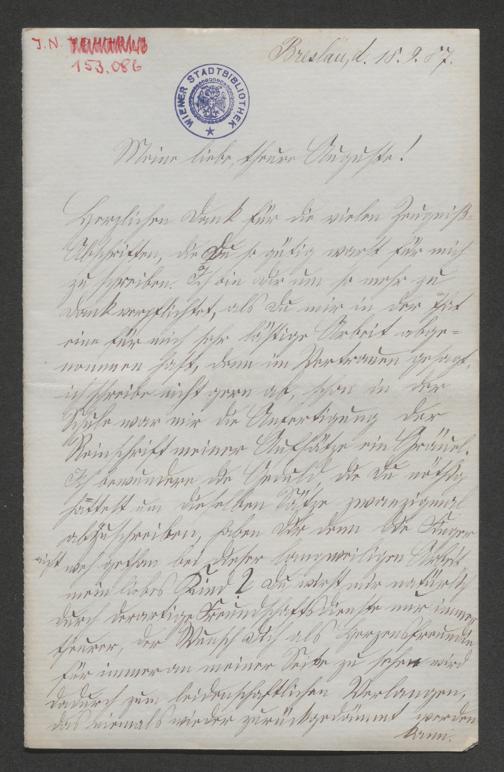 J. N.
153.086
Breslau, d. 18.9.87.
WIENER STADTBIBLIOTHEK
Meine liebe, theure Auguste!
Herzlichen Dank für die vielen Zeugniß-
Abschriften, die Du so gütig warst für mich
zu schreiben. Ich bin dir um so mehr zu
Dank verpflichtet, als Du mir in der That
eine für mich sehr lästige Arbeit abge-
nommen hast, denn im Vertrauen gesagt,
ich schreibe nicht gern ab, schon in der
Schule war mir die Anfertigung der
Reinschrift meiner Aufsätze ein Gräuel.
Ich bewundere die Geduld, die Du nöthig
hattest um dieselben Sätze zwanzigmal
abzuschreiben, haben Dir denn die Finger
nicht weh gethan bei dieser langweiligen Arbeit
mein liebes Kind? Du wirst mir natürlich
durch derartige Freundschaftsdienste nur immer
theurer, der Wunsch Dich als Herzensfreundin
für immer an meiner Seite zu sehen wird
dadurch zum leidenschaftlichen Verlangen,
das niemals wieder zurückgedämmt werden
kann.